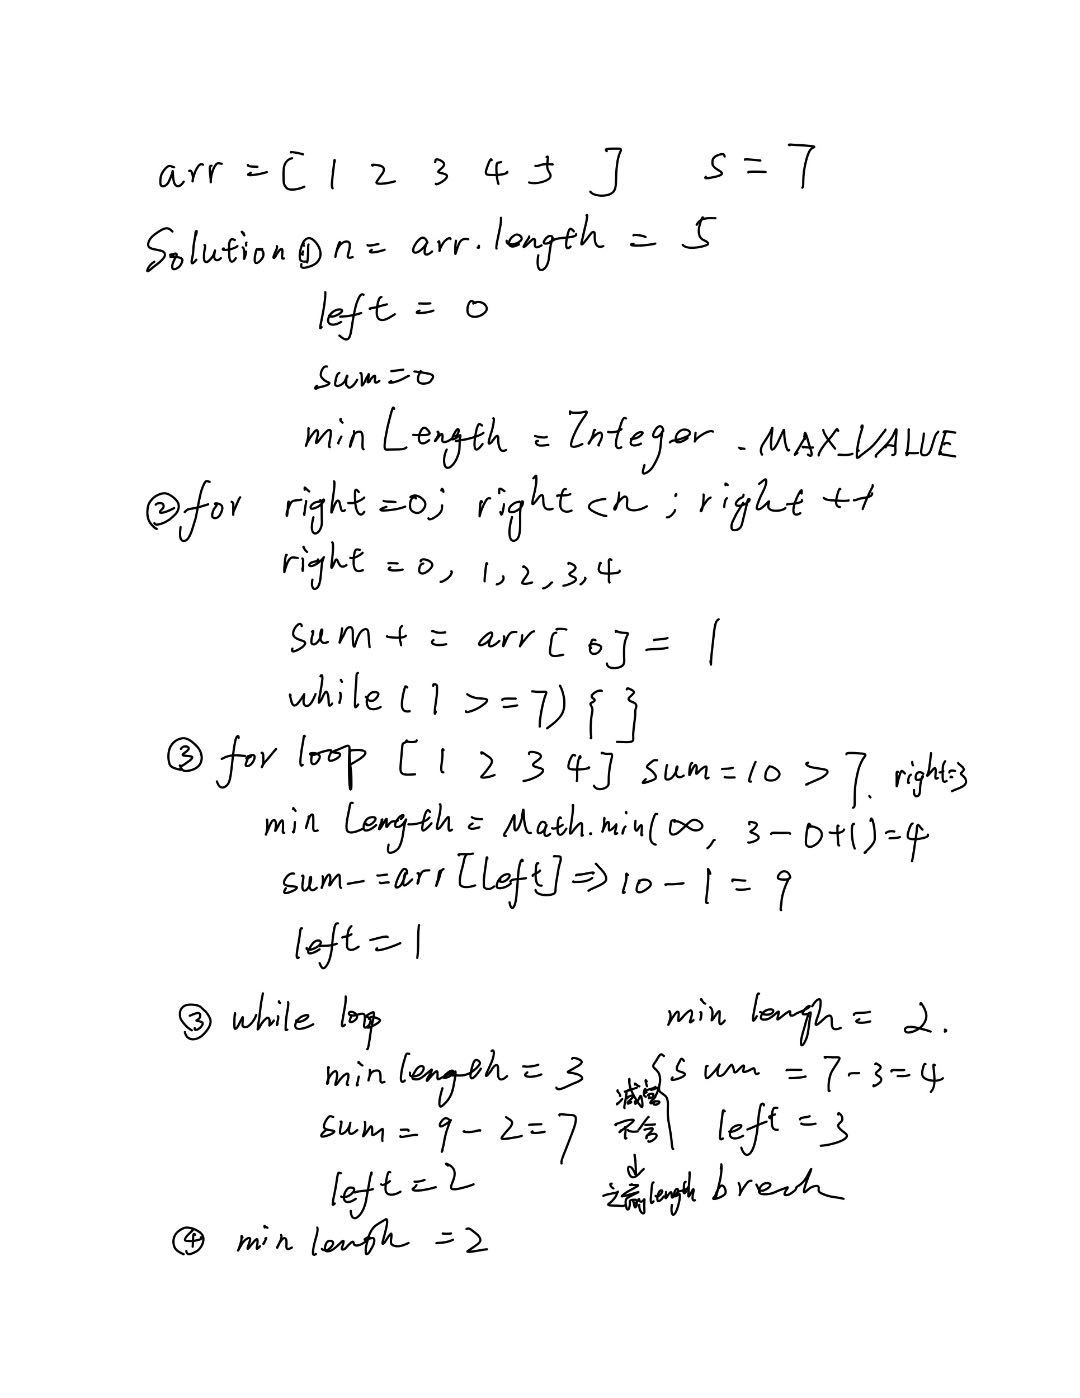 arr = [ 1 2 3 4 5 ] s = 7
Solution ① n = arr.length = 5
left = 0
sum=0
min Length = Integer . MAX_VALUE
② for right =0; right < n ; right ++
right = 0, 1, 2, 3, 4
sum + = arr [ 0 ] = 1
while ( 1 > = 7) { }
③ for loop [ 1 2 3 4 ] sum = 10 > 7. right=3
min Length = Math.min( ∞, 3 - 0+1) = 4
sum- = arr [left] => 10 - 1 = 9
left = 1
③ while loop
min length = 3
sum = 9 - 2 = 7
left = 2
min lengh = 2.
{ sum = 7 - 3 = 4
left = 3
减完
不含
↓
之前 length
break
④ min lenth = 2